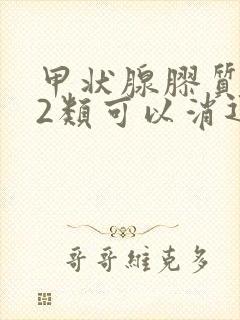 甲状腺膠質
2類可以消
哥哥維克多